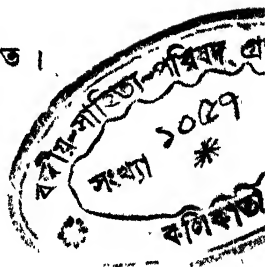 ত ।
বঙ্গীয়-সাহিত্য-পরিষদ্ গ্র
সংখ্যা ১০৫৭
কলিকাতা